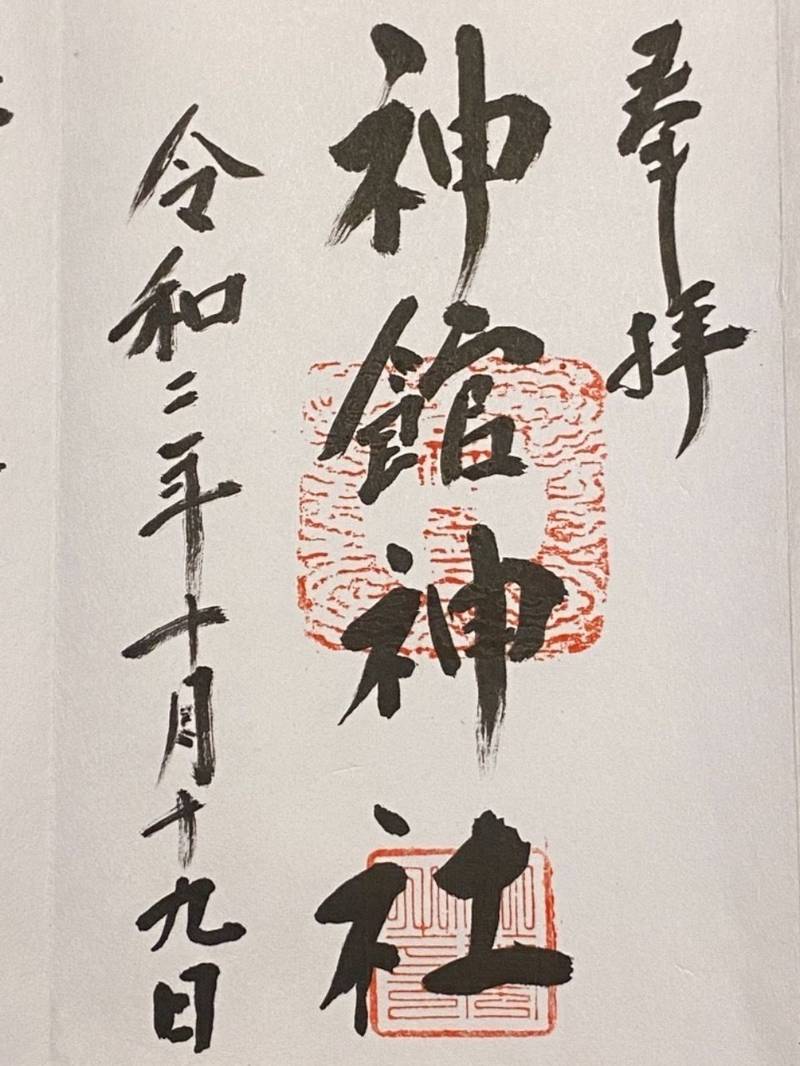 奉拝
神館神社
令和二年十月十九日